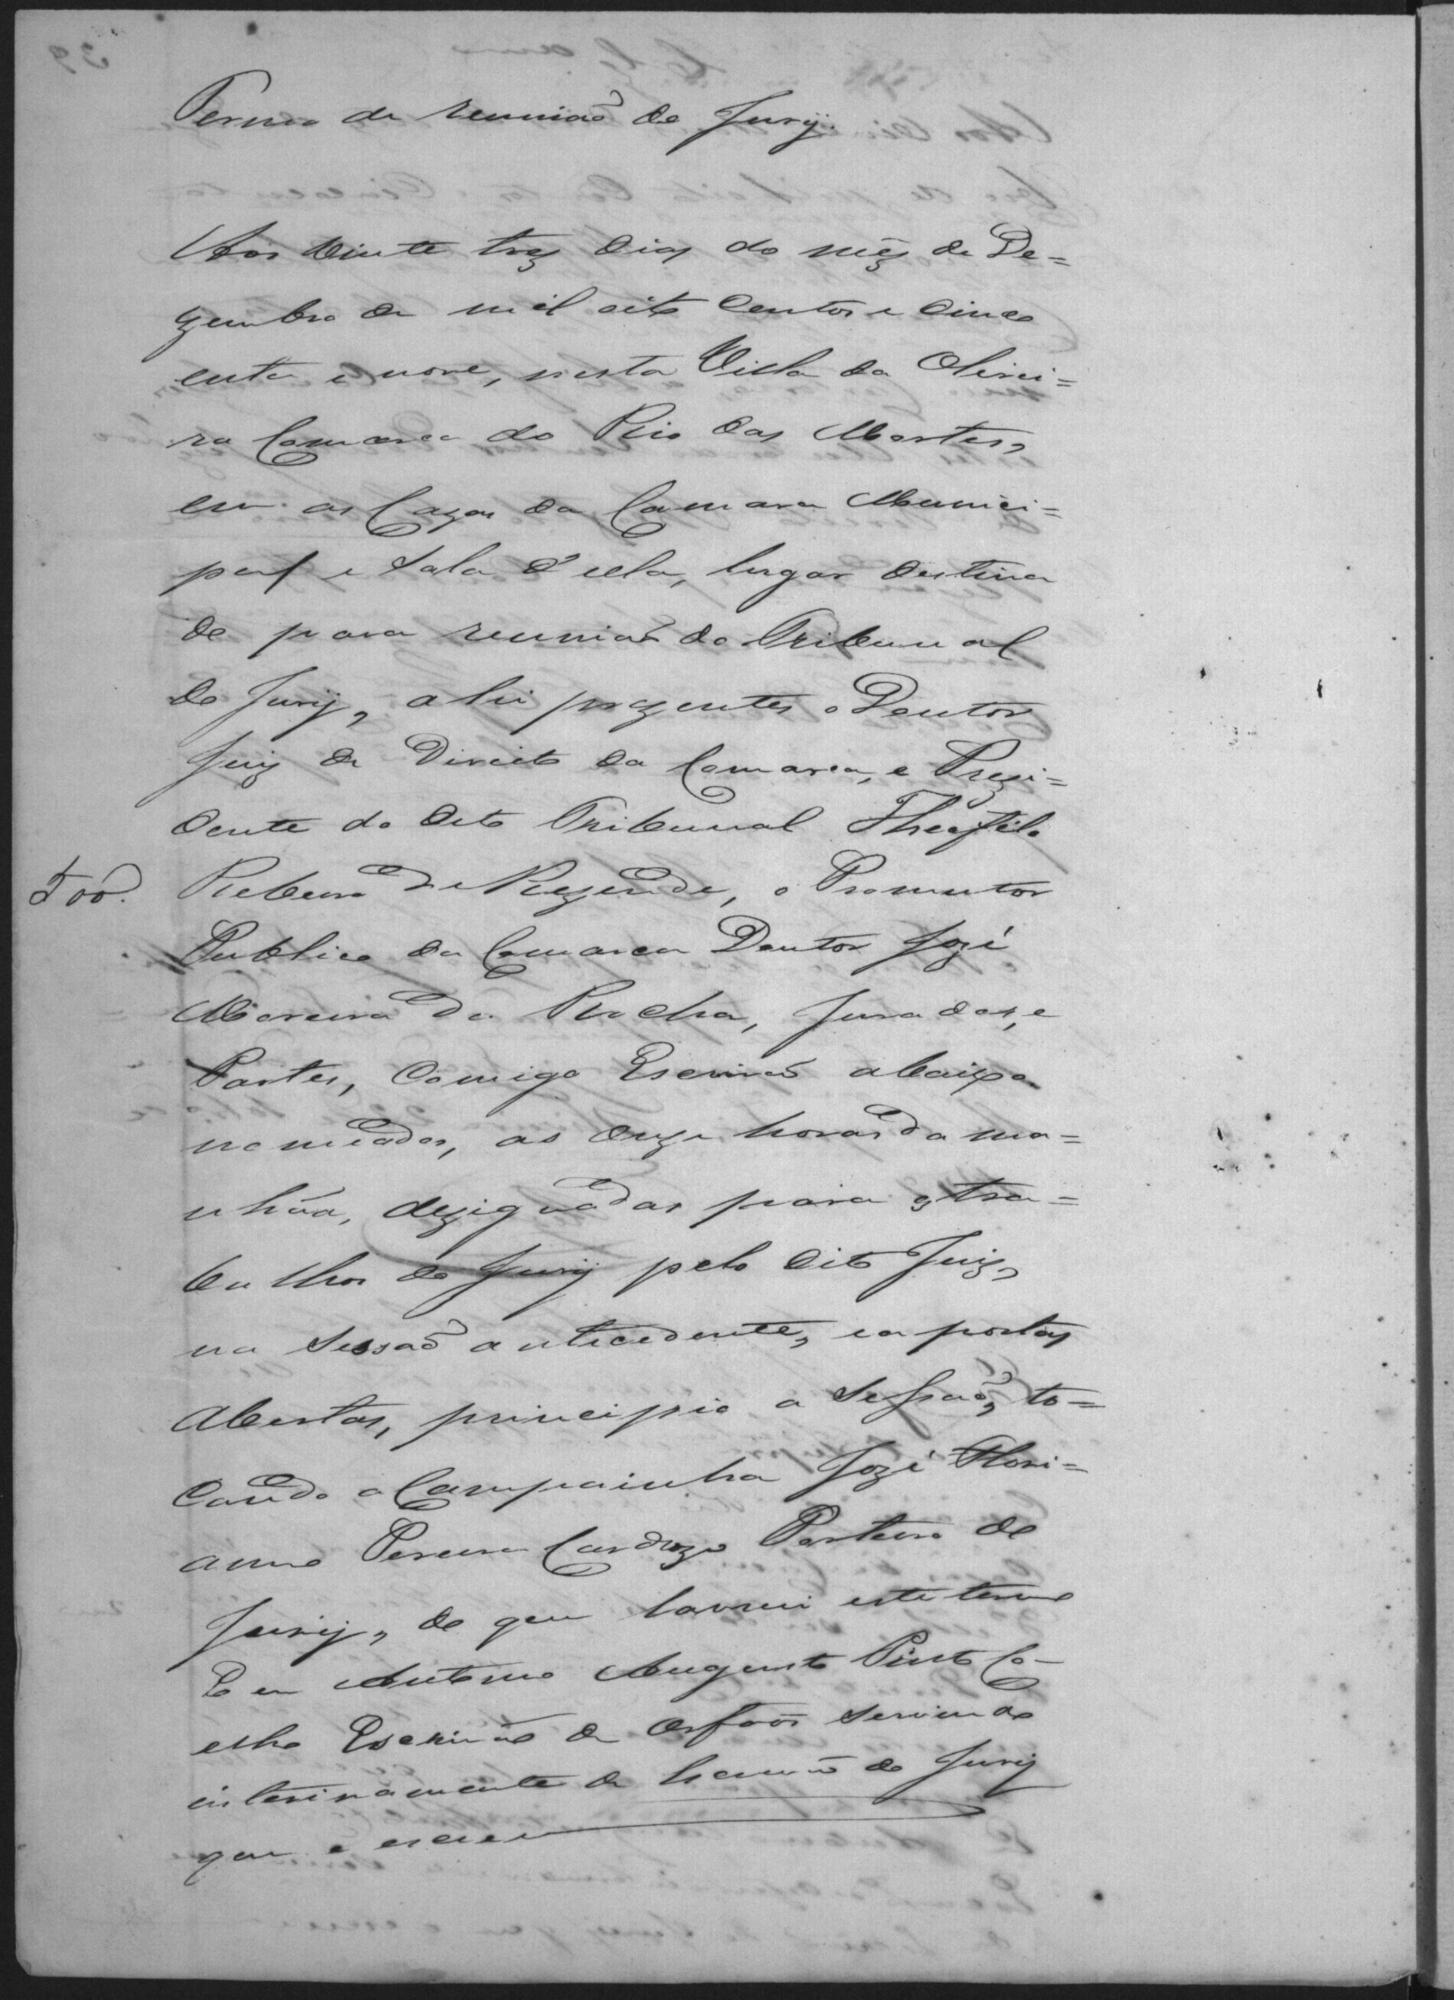 Termo de reunião do Jury.
Aos vinte trez dias do mêz de De=
zembro de mil oito centos e cinco
enta e nove, nesta Villa da Olivei=
ra Comarca do Rio das Mortes,
em as Cazas da Camara Munici=
pal e Sala d'ella, lugar destina
do para reunião do Tribunal
do Jury, ahi prezentes o Doutor
Juiz de Direito da Comarca, e Prezi=
dente do dito Tribunal Theofilo
Ribeiro de Rezende, o Promutor
Publico da Comarca Doutor Jozé
Moreira da Rocha, Jurados, e
Partes, Comigo Escrivão abaixo
nomeado, as onze horas da ma=
nhãa, dezignadas para os tra=
balhos do Jury pelo dito Juiz,
na Sessaõ antecedente, e a portas
abertas, principio a Sessaõ, to=
cando a Campainha Jozé Flori=
anno Pereira Cardozo Porteiro do
Jury, do que lavrei este termo
Eu Antonio Augusto Pinto Co-
elho Escrivão de Orfaõs servindo
interinamente de Escrivão do Jury
que o escrevi